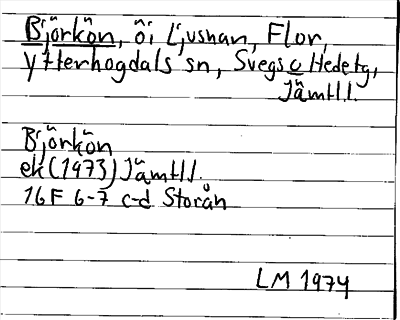 Björkön, ö i Ljusnan, Flor,
Ytterhogdals sn, Svegs o Hedetg,
Jämtl l.
Björkön
ek (1973) Jämtl l.
16F 6-7 c-d Storån
LM 1974